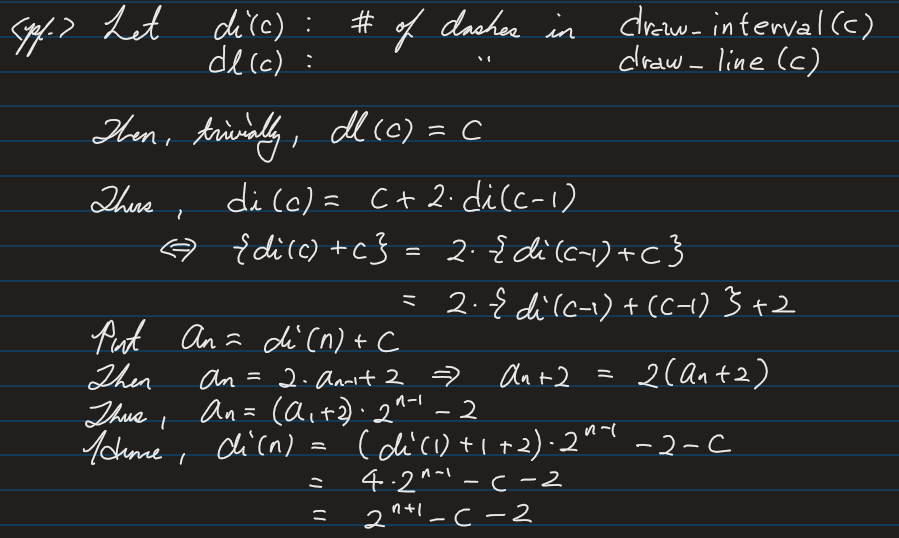 <pf.> Let di(c) : # of dashes in draw_interval(c)
dl(c) : " draw_line(c)
Then, trivially, dl(c) = c
Thus, di(c) = c + 2·di(c-1)
⇔ {di(c) + c} = 2·{di(c-1) + c}
= 2·{di(c-1) + (c-1)} + 2
Put an = di(n) + c
Then an = 2·an-1 + 2 ⇒ an+2 = 2(an+2)
Thus, an = (a1+2)·2^n-1 - 2
Hence, di(n) = (di(1)+1+2)·2^n-1 - 2 - c
= 4·2^n-1 - c - 2
= 2^n+1 - c - 2